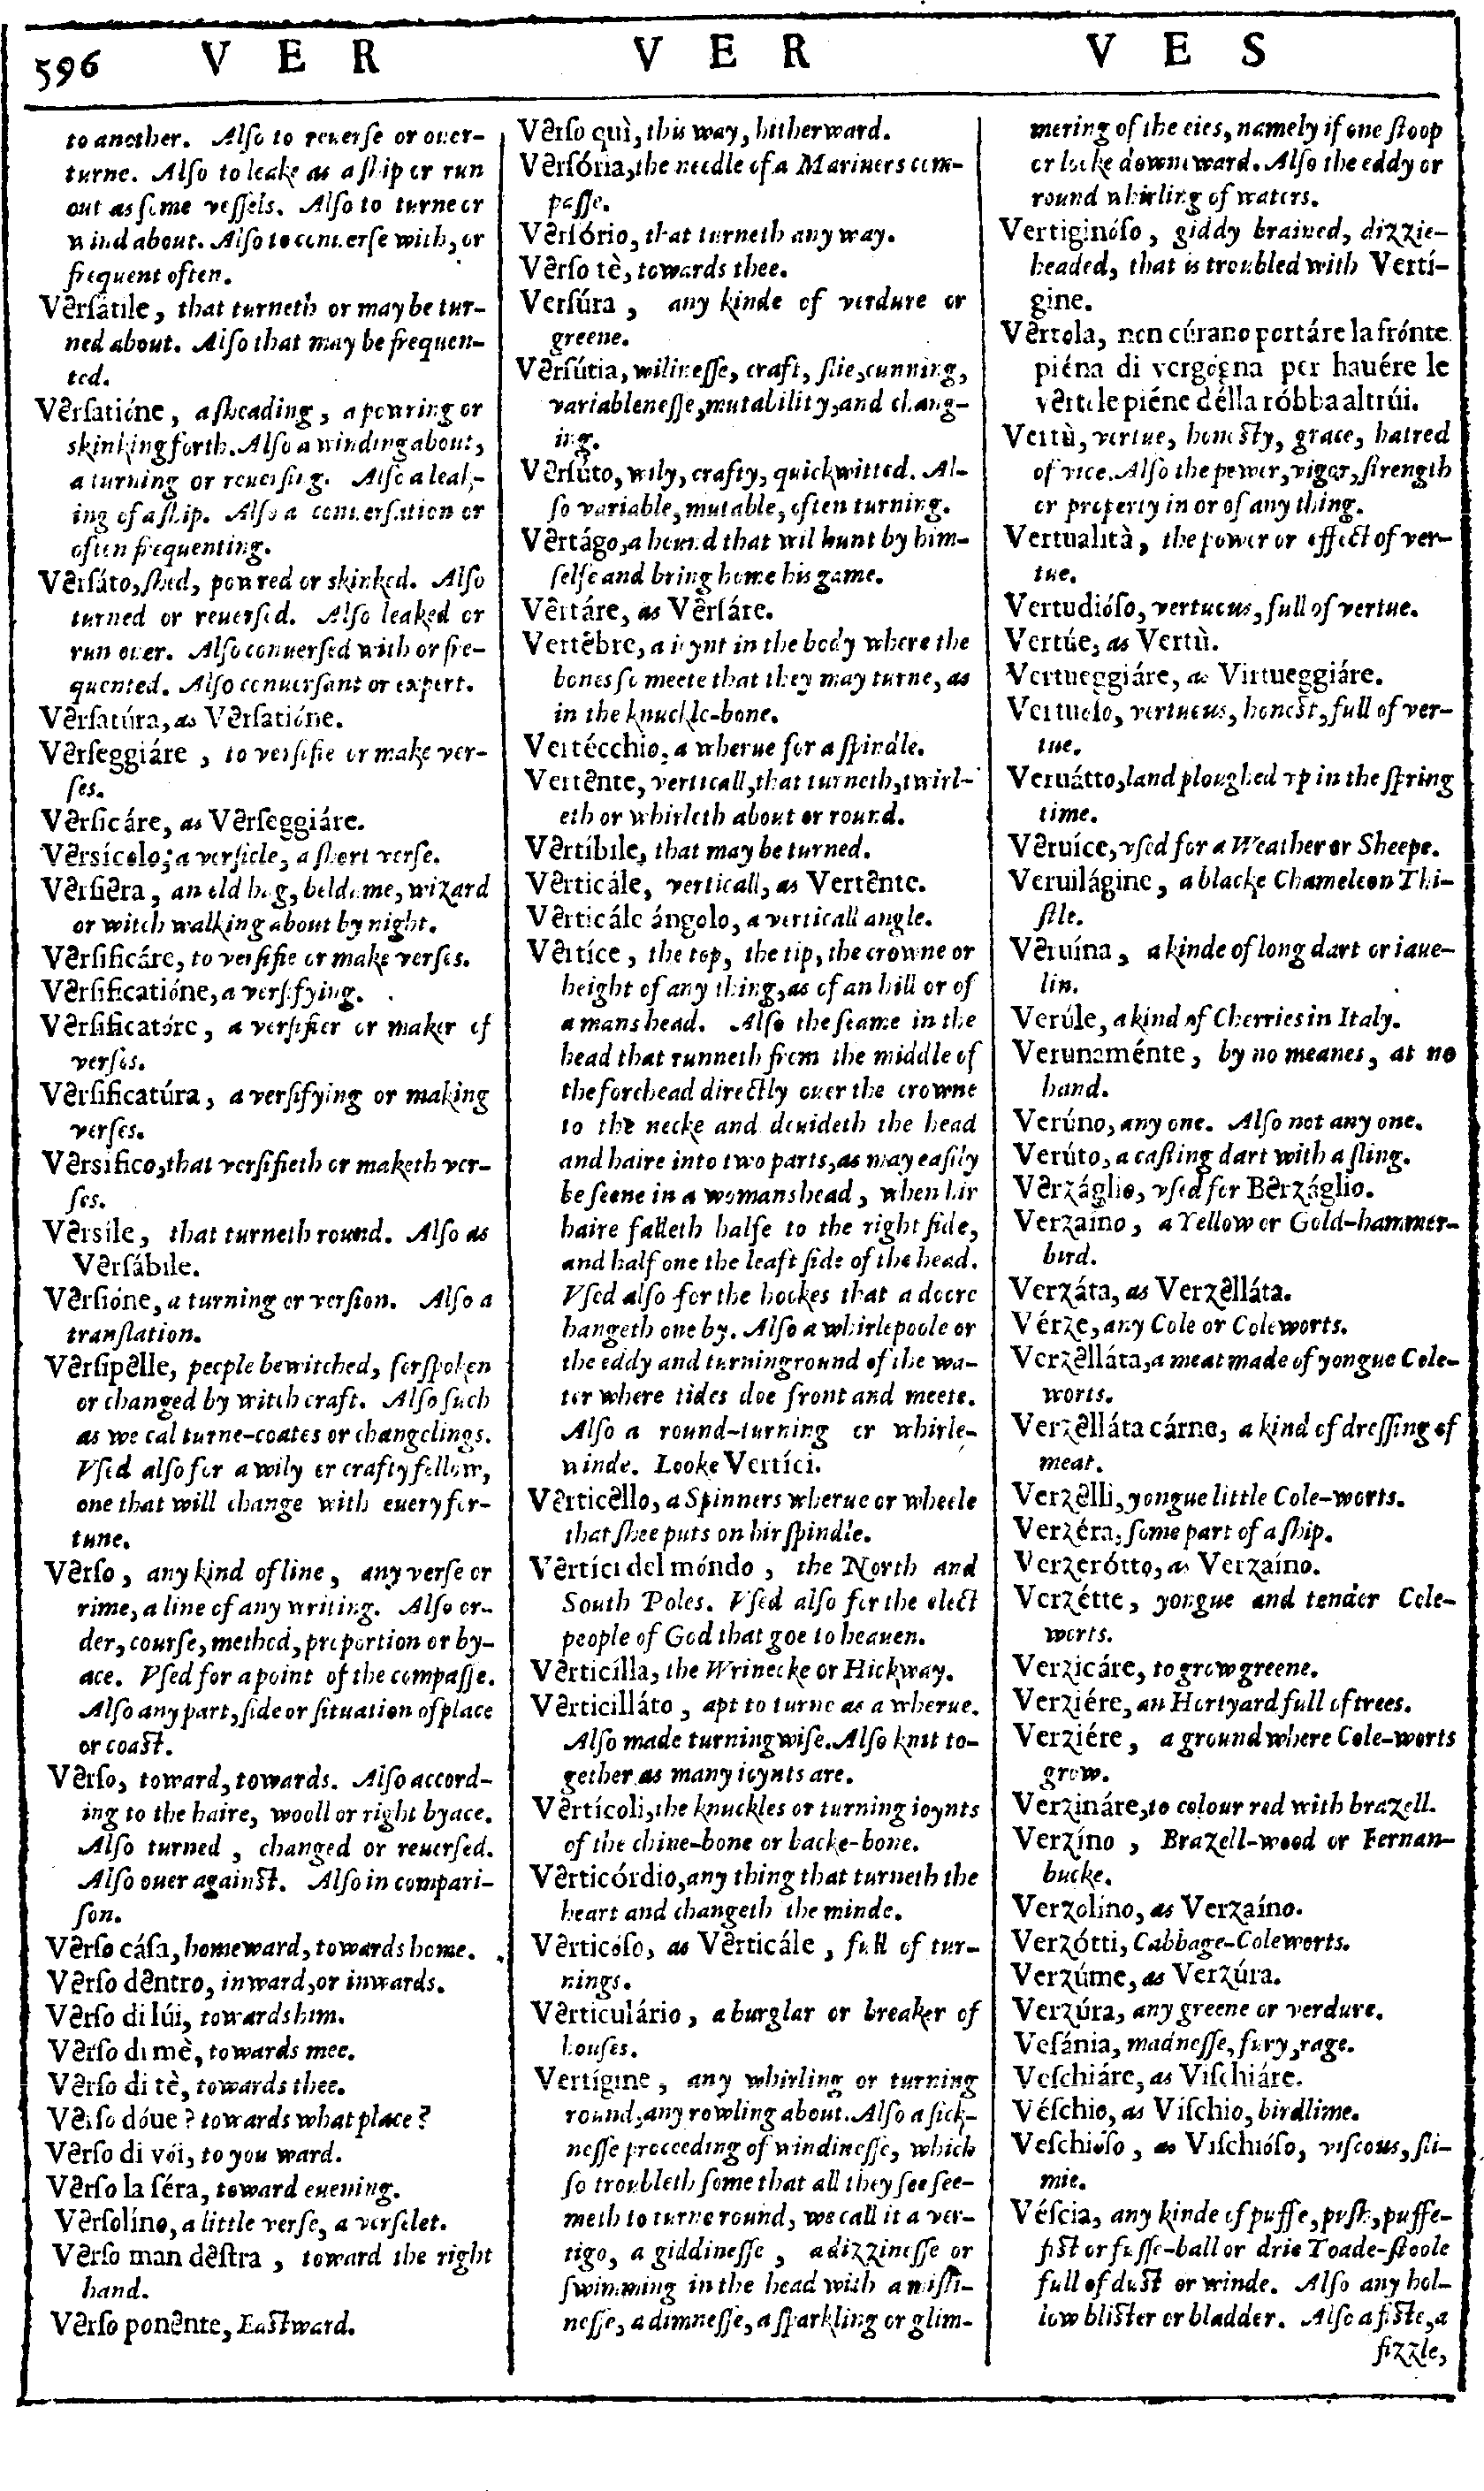 596 V E R V E R V E S
to another. Alſo to reuerſe or ouer-
turne. Alſo to leake as a ſhip or run
out as ſome veſſels. Alſo to turne or
wind about. Alſo to conuerſe with, or
frequent often.
Vêrſátile, that turneth or may be tur-
ned about. Alſo that may be frequen-
ted.
Vêrſatióne, a ſheading, a pouring or
skinking forth. Alſo a winding about,
a turning or reuerſing. Alſo a leak-
ing of a ſhip. Alſo a conuerſation or
often frequenting.
Vêrſáto, ſhed, poured or skinked. Alſo
turned or reuerſed. Alſo leaked or
run ouer. Alſo conuerſed with or fre-
quented. Alſo conuerſant or expert.
Vêrſatúra, as Vêrſatióne.
Vêrſeggiáre, to verſifie or make ver-
ſes.
Vêrſicáre, as Vêrſeggiáre.
Vêrsícolo, a verſicle, a ſhort verſe.
Vêrſiêra, an old hag, beldame, wizard
or witch walking about by night.
Vêrſificáre, to verſifie or make verſes.
Vêrſificatióne, a verſifying.
Vêrſificatóre, a verſifier or maker of
verſes.
Vêrſificatúra, a verſifying or making
verſes.
Vêrsífico, that verſifieth or maketh ver-
ſes.
Vêrsíle, that turneth round. Alſo as
Vêrſábile.
Vêrſióne, a turning or verſion. Alſo a
tranſlation.
Vêrſipêlle, people bewitched, forſpoken
or changed by witch craft. Alſo ſuch
as we cal turne-coates or changelings.
Vſed alſo for a wily or crafty fellow,
one that will change with euery for-
tune.
Vêrſo, any kind of line, any verſe or
rime, a line of any writing. Alſo or-
der, courſe, method, proportion or by-
ace. Vſed for a point of the compaſſe.
Alſo any part, ſide or ſituation of place
or coaſt.
Vêrſo, toward, towards. Alſo accord-
ing to the haire, wooll or right byace.
Alſo turned, changed or reuerſed.
Alſo ouer againſt. Alſo in compari-
ſon.
Vêrſo cáſa, homeward, towards home.
Vêrſo dêntro, inward, or inwards.
Vêrſo di lúi, towards him.
Vêrſo di mè, towards mee.
Vêrſo di tè, towards thee.
Vêrſo dóue? towards what place?
Vêrſo di vói, to you ward.
Vêrſo la ſéra, toward euening.
Vêrſolíno, a little verſe, a verſelet.
Vêrſo man dêſtra, toward the right
hand.
Vêrſo ponênte, Eaſtward.
Vêrſo quì, this way, hitherward.
Vêrſória, the needle of a Mariners com-
paſſe.
Vêrſório, that turneth any way.
Vêrſo tè, towards thee.
Verſúra, any kinde of verdure or
greene.
Vêrſútia, wilineſſe, craft, ſlie, cunning,
variableneſſe, mutability, and chang-
ing.
Vêrſúto, wily, crafty, quick witted. Al-
ſo variable, mutable, often turning.
Vêrtágo, a hound that wil hunt by him-
ſelfe and bring home his game.
Vêrtáre, as Vêrſáre.
Vertêbre, a ioynt in the body where the
bones ſo meete that they may turne, as
in the knuckle-bone.
Vertécchio, a wherue for a ſpindle.
Vertênte, verticall, that turneth, twirl-
eth or whirleth about or round.
Vêrtíbile, that may be turned.
Vêrticále, verticall, as Vertênte.
Vêrticále ángolo, a verticall angle.
Vêrtíce, the top, the tip, the crowne or
height of any thing, as of an hill or of
a mans head. Alſo the ſeame in the
head that runneth from the middle of
the forehead directly ouer the crowne
to the necke and deuideth the head
and haire into two parts, as may eaſily
be ſeene in a womans head, when hir
haire falleth halfe to the right ſide,
and half one the leaft ſide of the head.
Vſed alſo for the hookes that a doore
hangeth one by. Alſo a whirlepoole or
the eddy and turning round of the wa-
ter where tides doe front and meete.
Alſo a round-turning or whirle-
winde. Looke Vertíci.
Vêrticêllo, a Spinners wherue or wheele
that ſhee puts on hir ſpindle.
Vêrtíci del móndo, the North and
South Poles. Vſed alſo for the elect
people of God that goe to heauen.
Vêrticílla, the Wrinecke or Hickway.
Vêrticilláto, apt to turne as a wherue.
Alſo made turning wiſe. Alſo knit to-
gether as many ioynts are.
Vêrtícoli, the knuckles or turning ioynts
of the chine-bone or backe-bone.
Vêrticórdio, any thing that turneth the
heart and changeth the minde.
Vêrticóſo, as Vêrticále, full of tur-
nings.
Vêrticulário, a burglar or breaker of
houſes.
Vertígine, any whirling or turning
round, any rowling about. Alſo a ſick-
neſſe proceeding of windineſſe, which
ſo troubleth ſome that all they ſee ſee-
meth to turne round, we call it a ver-
tigo, a giddineſſe, a dizzineſſe or
ſwimming in the head with a miſti-
neſſe, a dimneſſe, a ſparkling or glim-
mering of the eies, namely if one ſtoop
or looke downeward. Alſo the eddy or
round whirling of waters.
Vertiginóſo, giddy brained, dizzie-
headed, that is troubled with Vertí-
gine.
Vêrtola, non cúrano portáre la frónte
piéna di vergógna per hauére le
vêrtole piéne délla róbba altrúi.
Vertù, vertue, honeſty, grace, hatred
of vice. Alſo the power, vigor, ſtrength
or property in or of any thing.
Vertualità, the power or effect of ver-
tue.
Vertudióſo, vertuous, full of vertue.
Vertúe, as Vertù.
Vertueggiáre, as Virtueggiáre.
Vertuóſo, vertuous, honeſt, full of ver-
tue.
Veruátto, land ploughed vp in the ſpring
time.
Vêruíce, vſed for a Weather or Sheepe.
Veruilágine, a blacke Chameleon Thi-
ſtle.
Vêruína, a kinde of long dart or iaue-
lin.
Verúle, a kind of Cherries in Italy.
Verunaménte, by no meanes, at no
hand.
Verúno, any one. Alſo not any one.
Verúto, a caſting dart with a ſling.
Vêrzáglio, vſed for Bêrzáglio.
Verzaíno, a Yellow or Gold-hammer-
bird.
Verzáta, as Verzêlláta.
Vérze, any Cole or Coleworts.
Verzêlláta, a meat made of yongue Cole-
worts.
Verzêlláta cárne, a kind of dreſſing of
meat.
Verzêlli, yongue little Cole-worts.
Verzéra, ſome part of a ſhip.
Verzerótto, as Verzaíno.
Verzétte, yongue and tender Cole-
worts.
Verzicáre, to grow greene.
Verziére, an Hortyard full of trees.
Verziére, a ground where Cole-worts
grow.
Verzináre, to colour red with brazell.
Verzíno, Brazell-wood or Fernan-
bucke.
Verzolíno, as Verzaíno.
Verzótti, Cabbage-Coleworts.
Verzúme, as Verzúra.
Verzúra, any greene or verdure.
Veſánia, madneſſe, fury, rage.
Veſchiáre, as Viſchiáre.
Véſchio, as Viſchio, birdlime.
Veſchióſo, as Viſchióſo, viſcous, ſli-
mie.
Véſcia, any kinde of puffe, puſh, puffe-
fiſt or fuſſe-ball or drie Toade-ſtoole
full of duſt or winde. Alſo any hol-
low bliſter or bladder. Alſo a fiſte, a
fizzle,